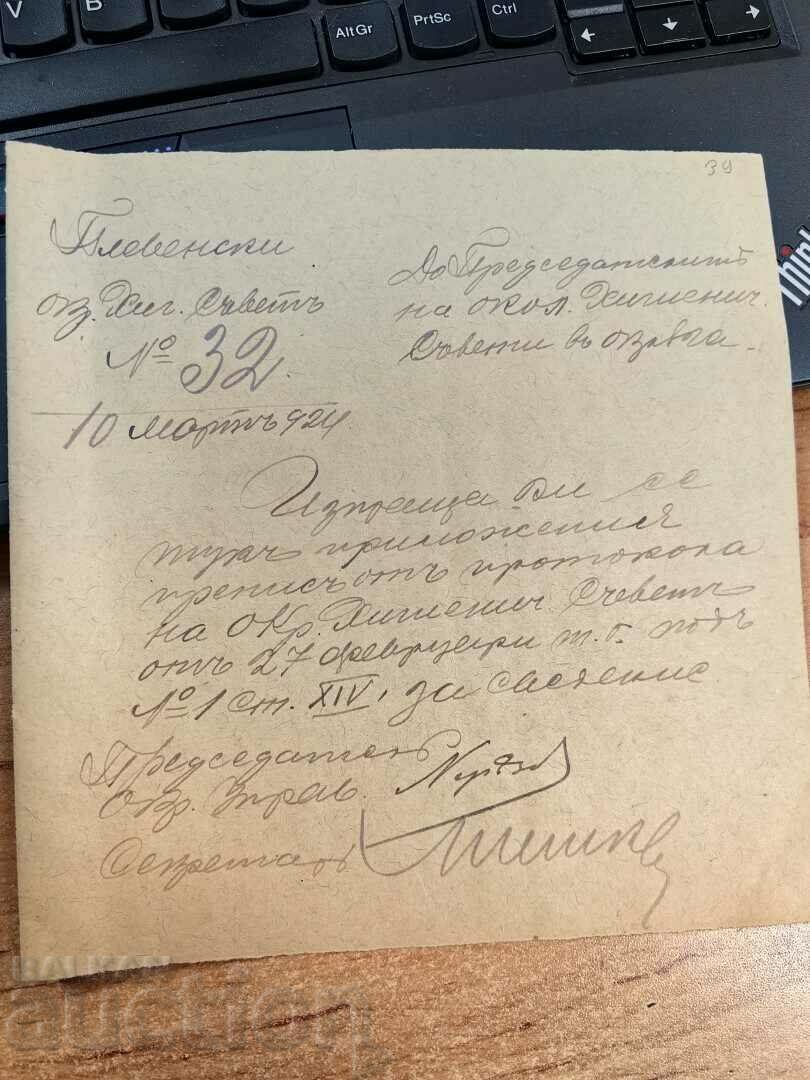 V
B
AltGr
PrtSc
Ctrl
Think
39
Плевенски
окр. Хиг. Съветъ
№ 32.
10 мартъ 924
До Председателитѣ
на окол. Хигиенич.
Съвети въ окръга.
Изпраща Ви се
тукъ приложения
преписъ отъ протокола
на Окр. Хигиенич. Съветъ
отъ 27 февруари т. г. подъ
№ 1 ст. XIV, за сведение.
Председателъ
Окр. Управ.
Секретаръ
BALKAN
auction